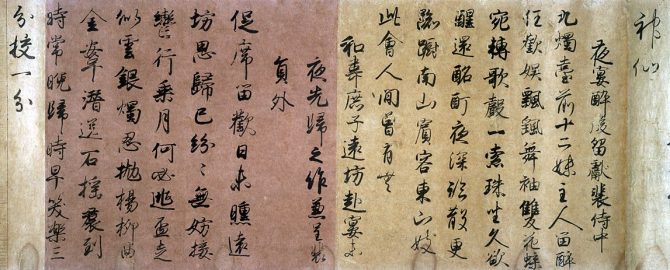 神仙
夜宴醉後留獻裴侍中
九燭臺前十二姝主人留醉
任歡娯飄颻舞袖雙飛蝶
宛轉歌聲一索珠坐久欲
醒還酩酊夜深初散更
踟躕南山賓客東山妓
此會人間曾有無
和韋庶子遠坊赴宴未
夜先歸之作兼呈裴
員外
促席留歡日未曛遠
坊思歸已紛々無妨按
轡行乘月何必逃盃走
似雲銀燭忍抛楊柳曲
金鞍潛送石榴裙到
時常晚歸時早笑樂三
分校一分